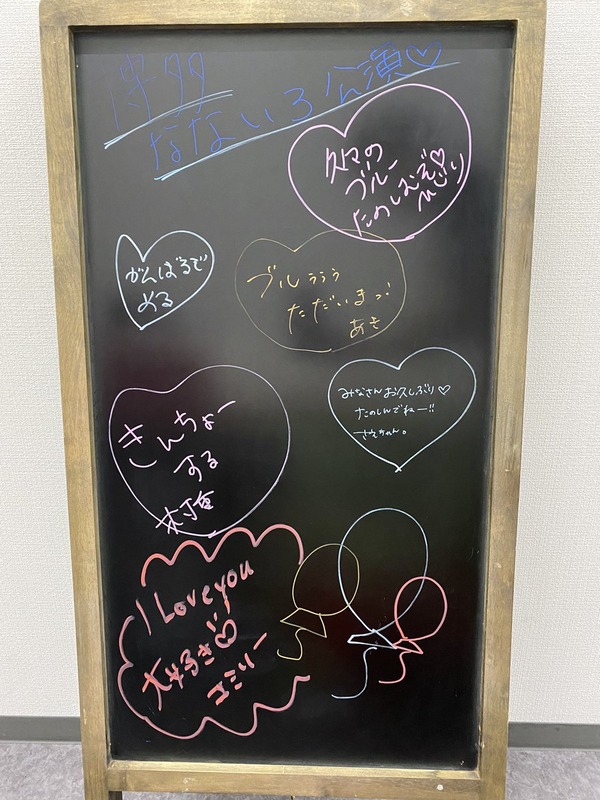 博多
なないろ公演♡
久々の
ブルー
たのしむぞ♡
ひじり
がんばるぞ
める
ブルぅぅぅ
ただいまっ!
あき
きんちょー
する
みなさんお久しぶり♡
たのしんでねー!!
さえちゃん。
I Love you
大好き♡
エミリー